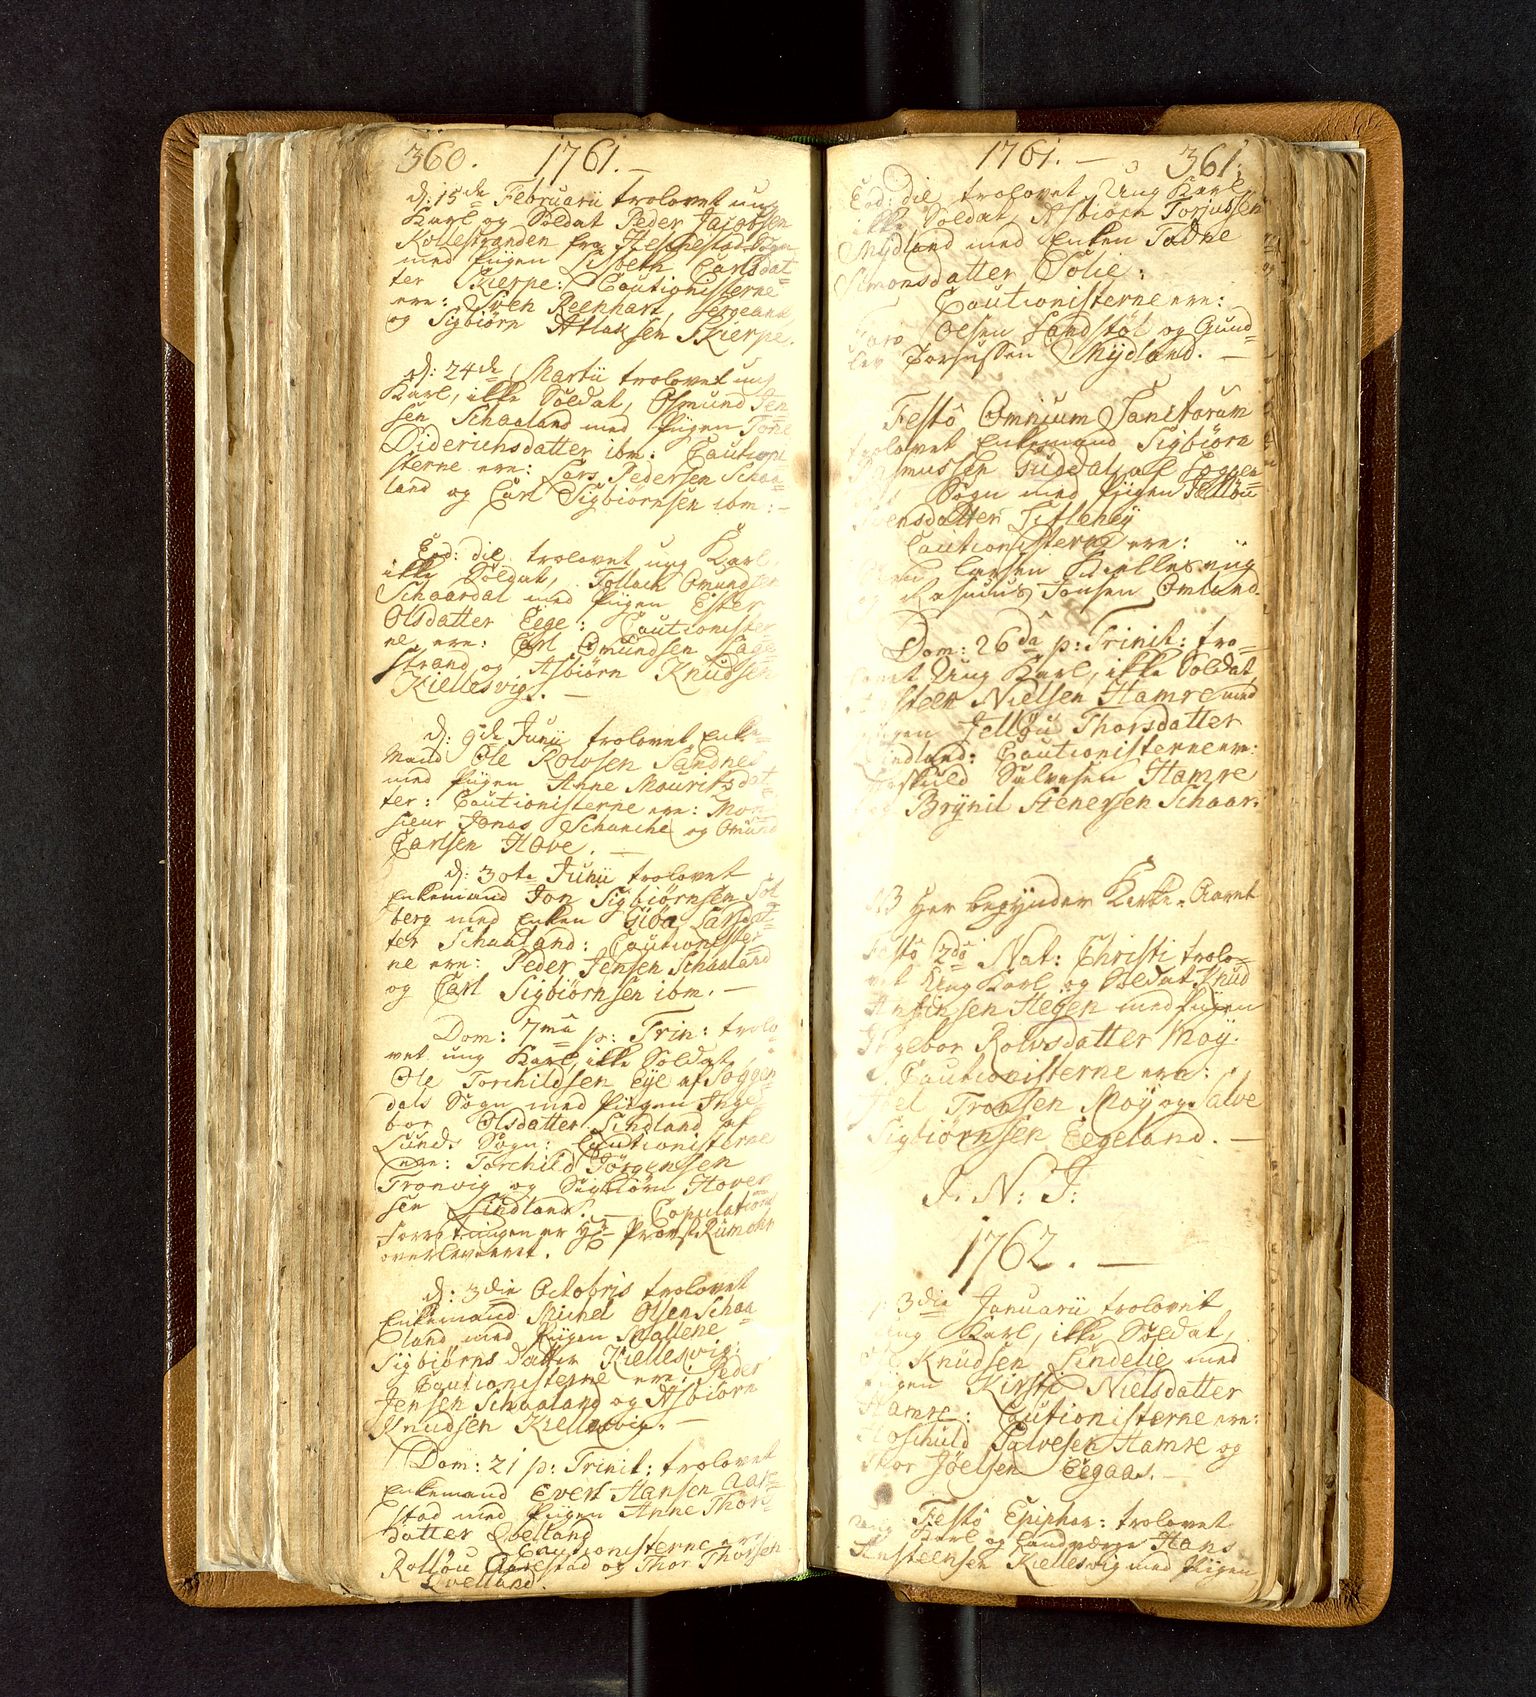 360. 1761.
d: 15de Februarii trolovet ung
Karl og Soldat Peder Jacobsen
Kollestranden fra Heschestad Sogn
med Piigen Lisbeth Carlsdat=
ter Skierpe: Cautionisterne
ere: Sven Reenhart, Sergeant,
og Sigbiørn Atlaksen Skierpe.
d: 24de Martii trolovet ung
Karl, ikke Soldat, Osmund Jen
sen Schaaland med Piigen Tone
Diderichsdatter ibm: Cautioni
sterne ere: Lars Pedersen Schaa=
land og Carl Sigbiørnsen ibm: -
Eod: die trolovet ung Karl,
ikke Soldat, Tollach Omundsen
Schaardal med Piigen Ester
Olsdatter Eege: Cautionister=
ne ere: Carl Omundsen Lage
strand og Asbiørn Knudsen
Kiellesvig. -
d: 9de Junii trolovet Enke=
Mand Ole Rolvsen Sandnes
med Piigen Anne Mouritsdat=
ter: Cautionisterne ere: Mon
sieur Jonas Schanche og Omund
Carlsen Hove. -
d: 30te Junii trolovet
Enkemand Jon Sigbiørnsen Sol
berg med Enken Giøa Larsdat=
ter Schaaland: Cautionister
ne ere: Peder Jensen Schaaland
og Carl Sigbiørnsen ibm. -
Dom: 7ma p: Trin: trolo
vet ung Karl, ikke Soldat,
Ole Torchildsen Eye af Soggen
dals Sogn med Piigen Inge
bor Olsdatter Lindland af
Lunds Sogn: Cautionisterne
ere: Torchild Jørgensen
Tronvig og Sigbiørn Hover
sen Lindland. - Copulations
Forretningen er Hr Provst Rumohr
overleveret.
d: 3die Octobris trolovet
Enkemand Michel Olsen Schaa
land med Piigen Mallene
Sigbiørns datter Kiellesvig:
Cautionisterne ere: Peder
Jensen Schaaland og Asbiørn
Knudsen Kiellesvig. -
Dom: 21 p: Trinit: trolovet
Enkemand Evert Hansen Aar=
stad med Piigen Anne Thors
datter Qvelland
Cautionisterne ere:
Rollou Aarestad og Thor Thorsen
Qvelland.
1761. - 361.
Eod: die trolovet Ung Karl
ikke Soldat, Asbiorn Torjussen
Mydland med Enken Tadne
Simonsdatter Solie:
Cautionisterne ere:
Lars Olsen Landstøl og Gund=
lev Torjussen Mydland. -
Festo Omnium Sanctorum
trolovet Enkemand Sigbiørn
Rasmussen Guddal af Soggen=
dals Sogn med Piigen Jellou
Svensdatter
Cautionisterne ere:
Larsen Kiellesviig
og Rasmus Tonsen Omland.
Dom: 26da p: Trinit: tro=
lovet Ung Karl, ikke Soldat,
Nielsen Hamre med
Piigen Jellou Thorsdatter
Lindland: Cautionisterne ere:
Hoskuld Salvesen Hamre
og Brynil Stenersen Schaar.
NB Her begynder Kirke-Aaret
Festo 2do Nat: Christi trolo=
vet Ung Karl og Soldat Knud
Hegen med Piigen
Ingebor Rolvsdatter Moy.
Cautionisterne ere:
Tronsen Moy og Salve
Sigbiørnsen Eegeland. -
I. N: J:
1762. -
3die Januarii trolovet
Ung Karl, ikke Soldat,
Ole Knudsen Lindelie med
Piigen Kirsti Nielsdatter
Hamre: Cautionisterne ere:
Hoschuld Salvesen Hamre og
Thor Joelsen Eegaas. -
Festo Epiphan: trolovet
ung Karl og Landværge Hans
Ansteensen Kiellesvig med Piigen